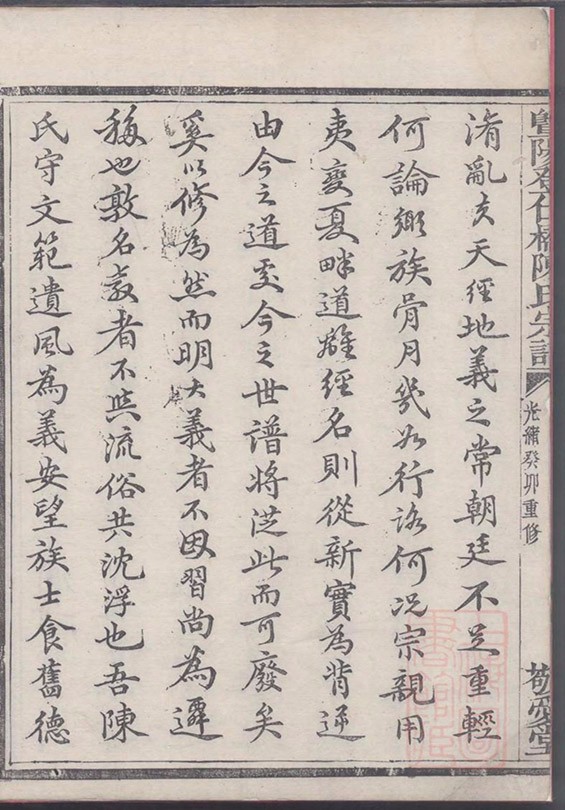 暨陽登仕橋陳氏宗譜 光緒癸卯重修 敬愛堂
淆亂夫天經地義之常朝廷不足重輕
何論鄉族骨月幾如行路何況宗親用
夷變夏畔道離經名則從新實為背逆
由今之道處今之世譜將從此而可廢矣
奚以修為然而明大義者不因習尚為遷
移也敦名教者不與流俗共沈浮也吾陳
氏守文範遺風為義安望族士食舊德